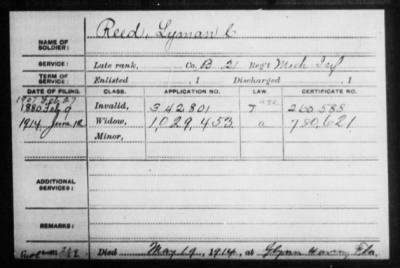 NAME OF SOLDIER: Reed, Lyman C
SERVICE: Late rank, Co. B. 21 Reg't Mich Inf
TERM OF SERVICE: Enlisted , 1 Discharged , 1
DATE OF FILING. CLASS. APPLICATION NO. LAW. CERTIFICATE NO.
1907 Feb 27
1880 Feb 9 Invalid, 342801 260588
1914, June 12 Widow, 1,029,453 a 780,621
Minor,
ADDITIONAL SERVICES:
REMARKS:
Died May 19, 1914, at Fla.